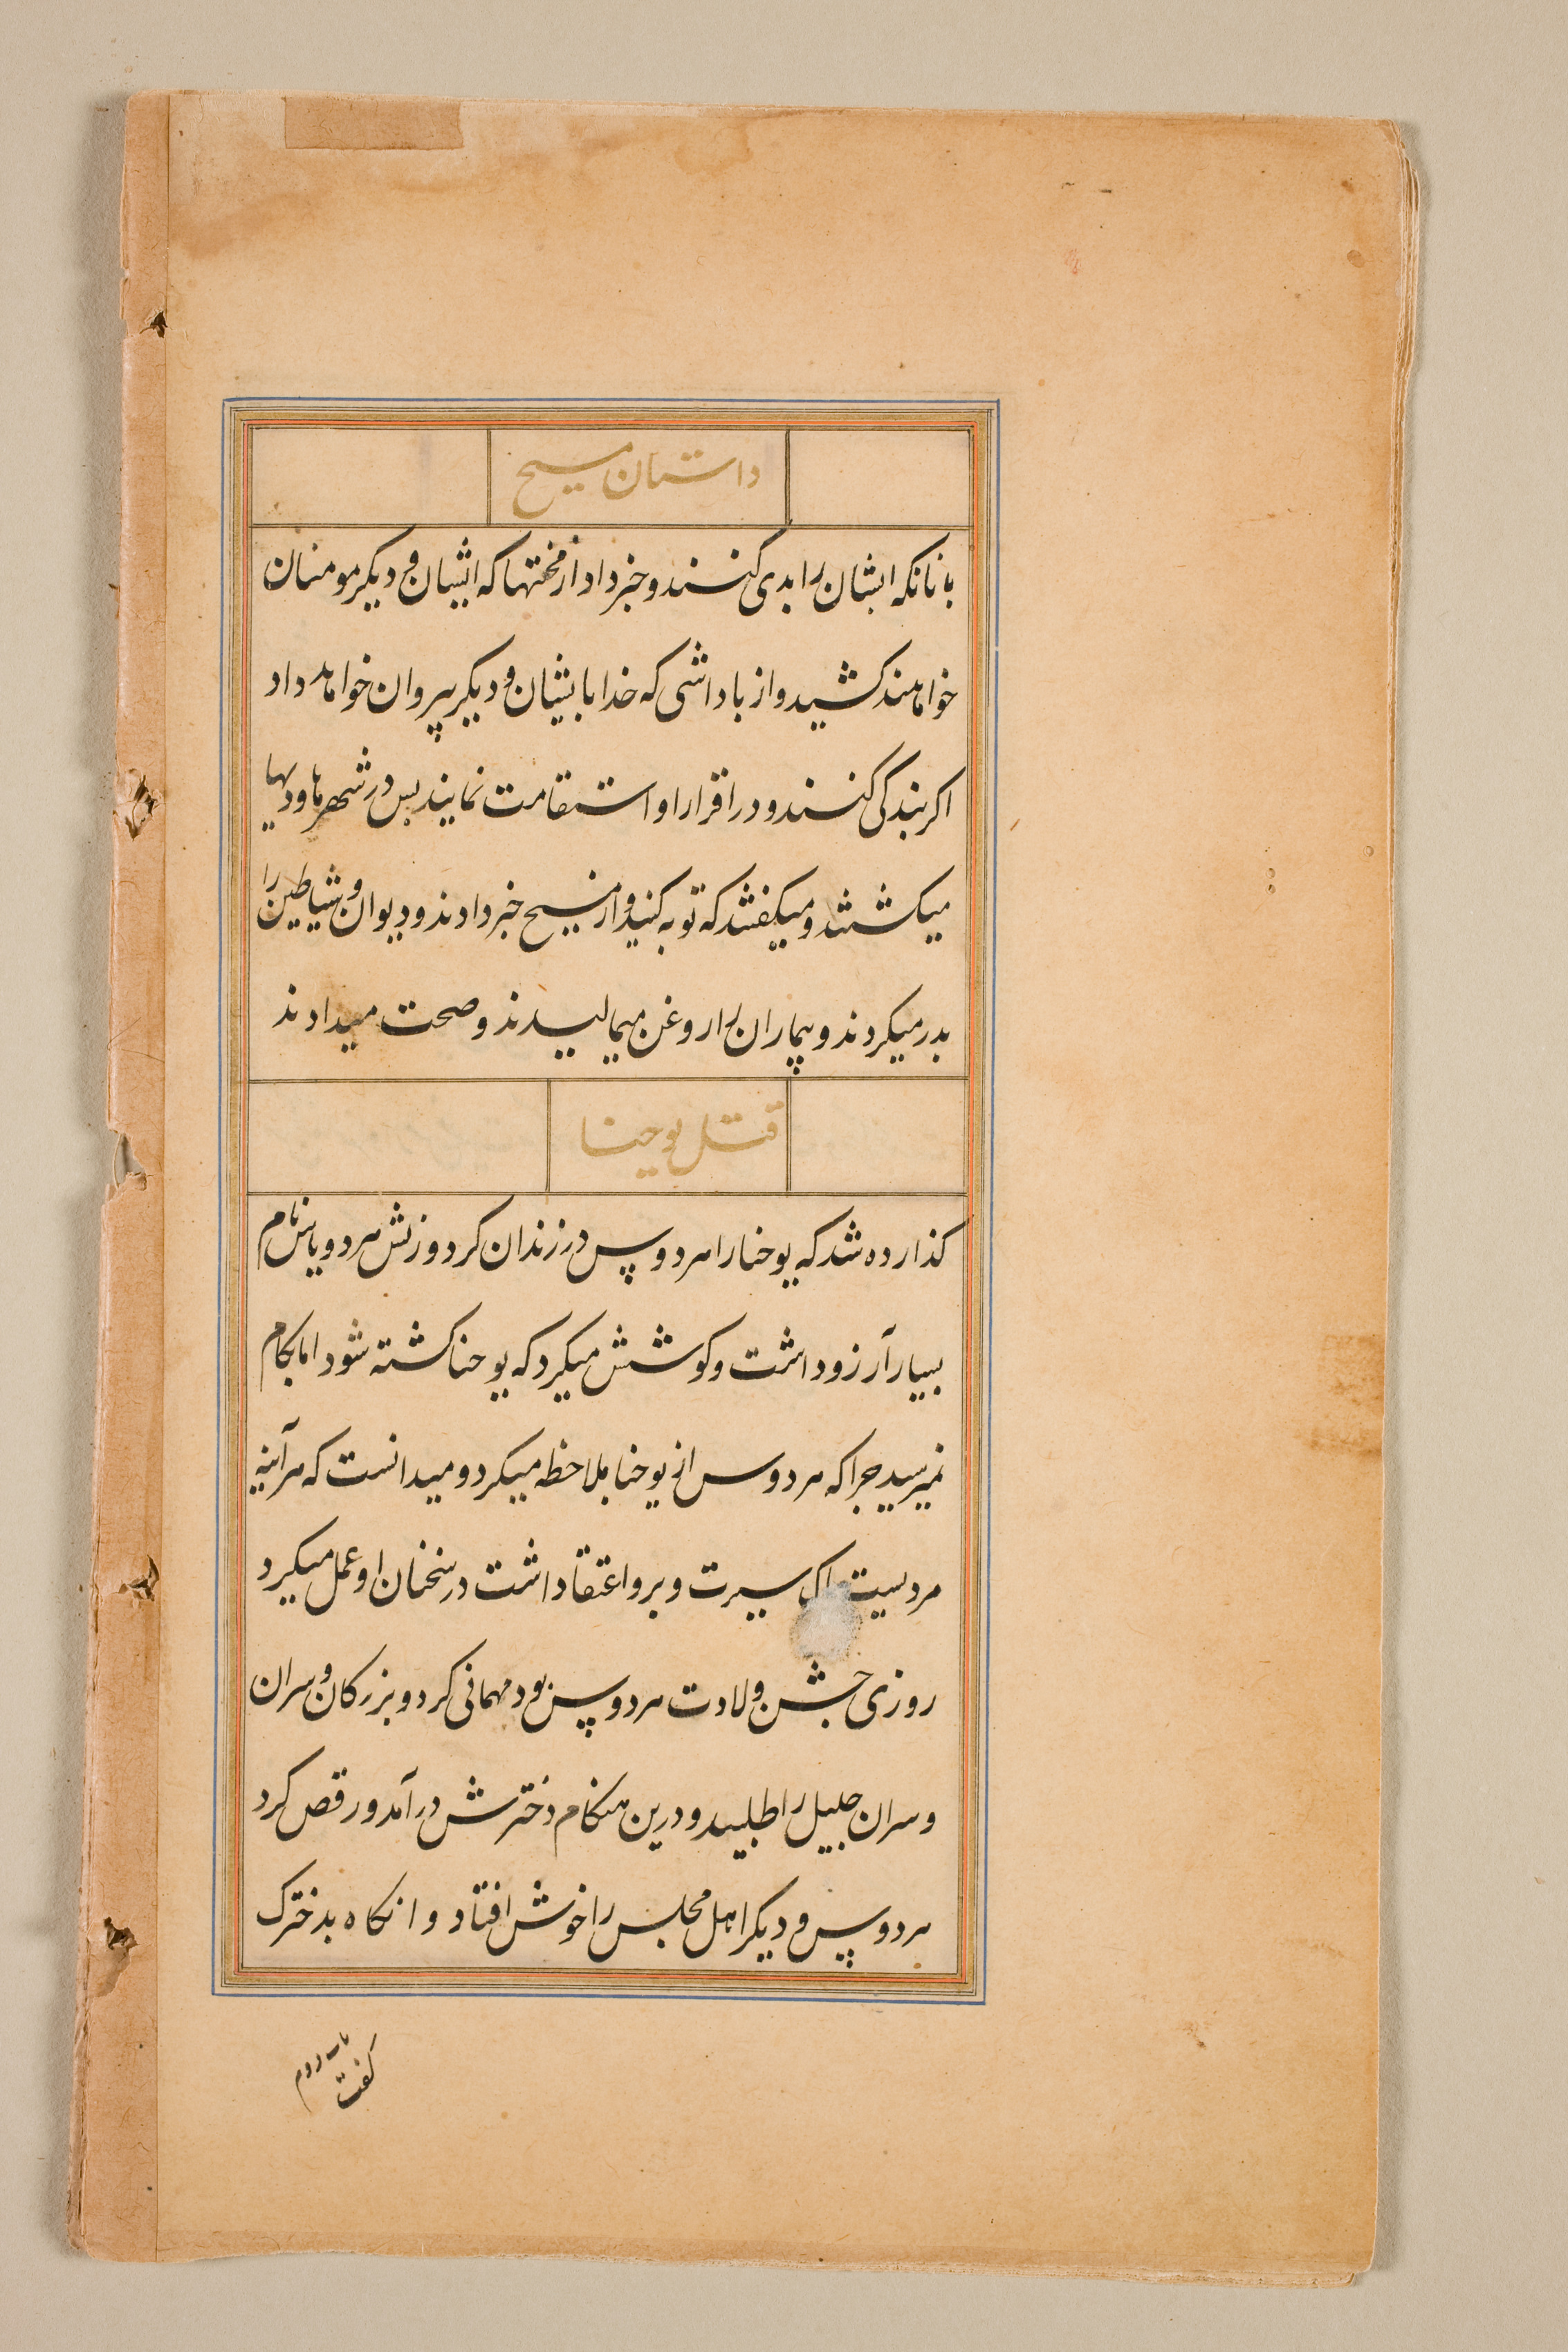 داستان مسیح
بانانکه ایشان را بدی کنند و خبر داد از محنتها که ایشان و دیکر مومنان
خواهند کشید و از باداشی که خدا بایشان و دیکر پیروان خواهد داد
اکر بندکی کنند و در اقرار او استقامت نمایند بس در شهرها و دیها
میکشتند و میکفتند که توبه کنید و از مسیح خبر دادند و دیوان و شیاطین را
بدر میکردند و بیماران را روغن میمالیدند و صحت میدادند
قتل یوحنا
کذارده شد که یوحنا را هردوس در زندان کرد و زنش هردویاس نام
بسیار آرزو داشت و کوشش میکرد که یوحنا کشته شود اما بکام
نمیرسید چرا که هردوس از یوحنا ملاحظه میکرد و میدانست که هرآینه
مردیست پاک سیرت و برو اعتقاد داشت در سخنان او عمل میکرد
روزی جشن ولادت هردوس بود مهمانی کرد و بزرکان و سران
و سران جلیل را طلبید و درین هنکام دخترش درآمد و رقص کرد
هردوس و دیکر اهل مجلس را خوش افتاد و انکاه بدخترک
کفت
باب دوم